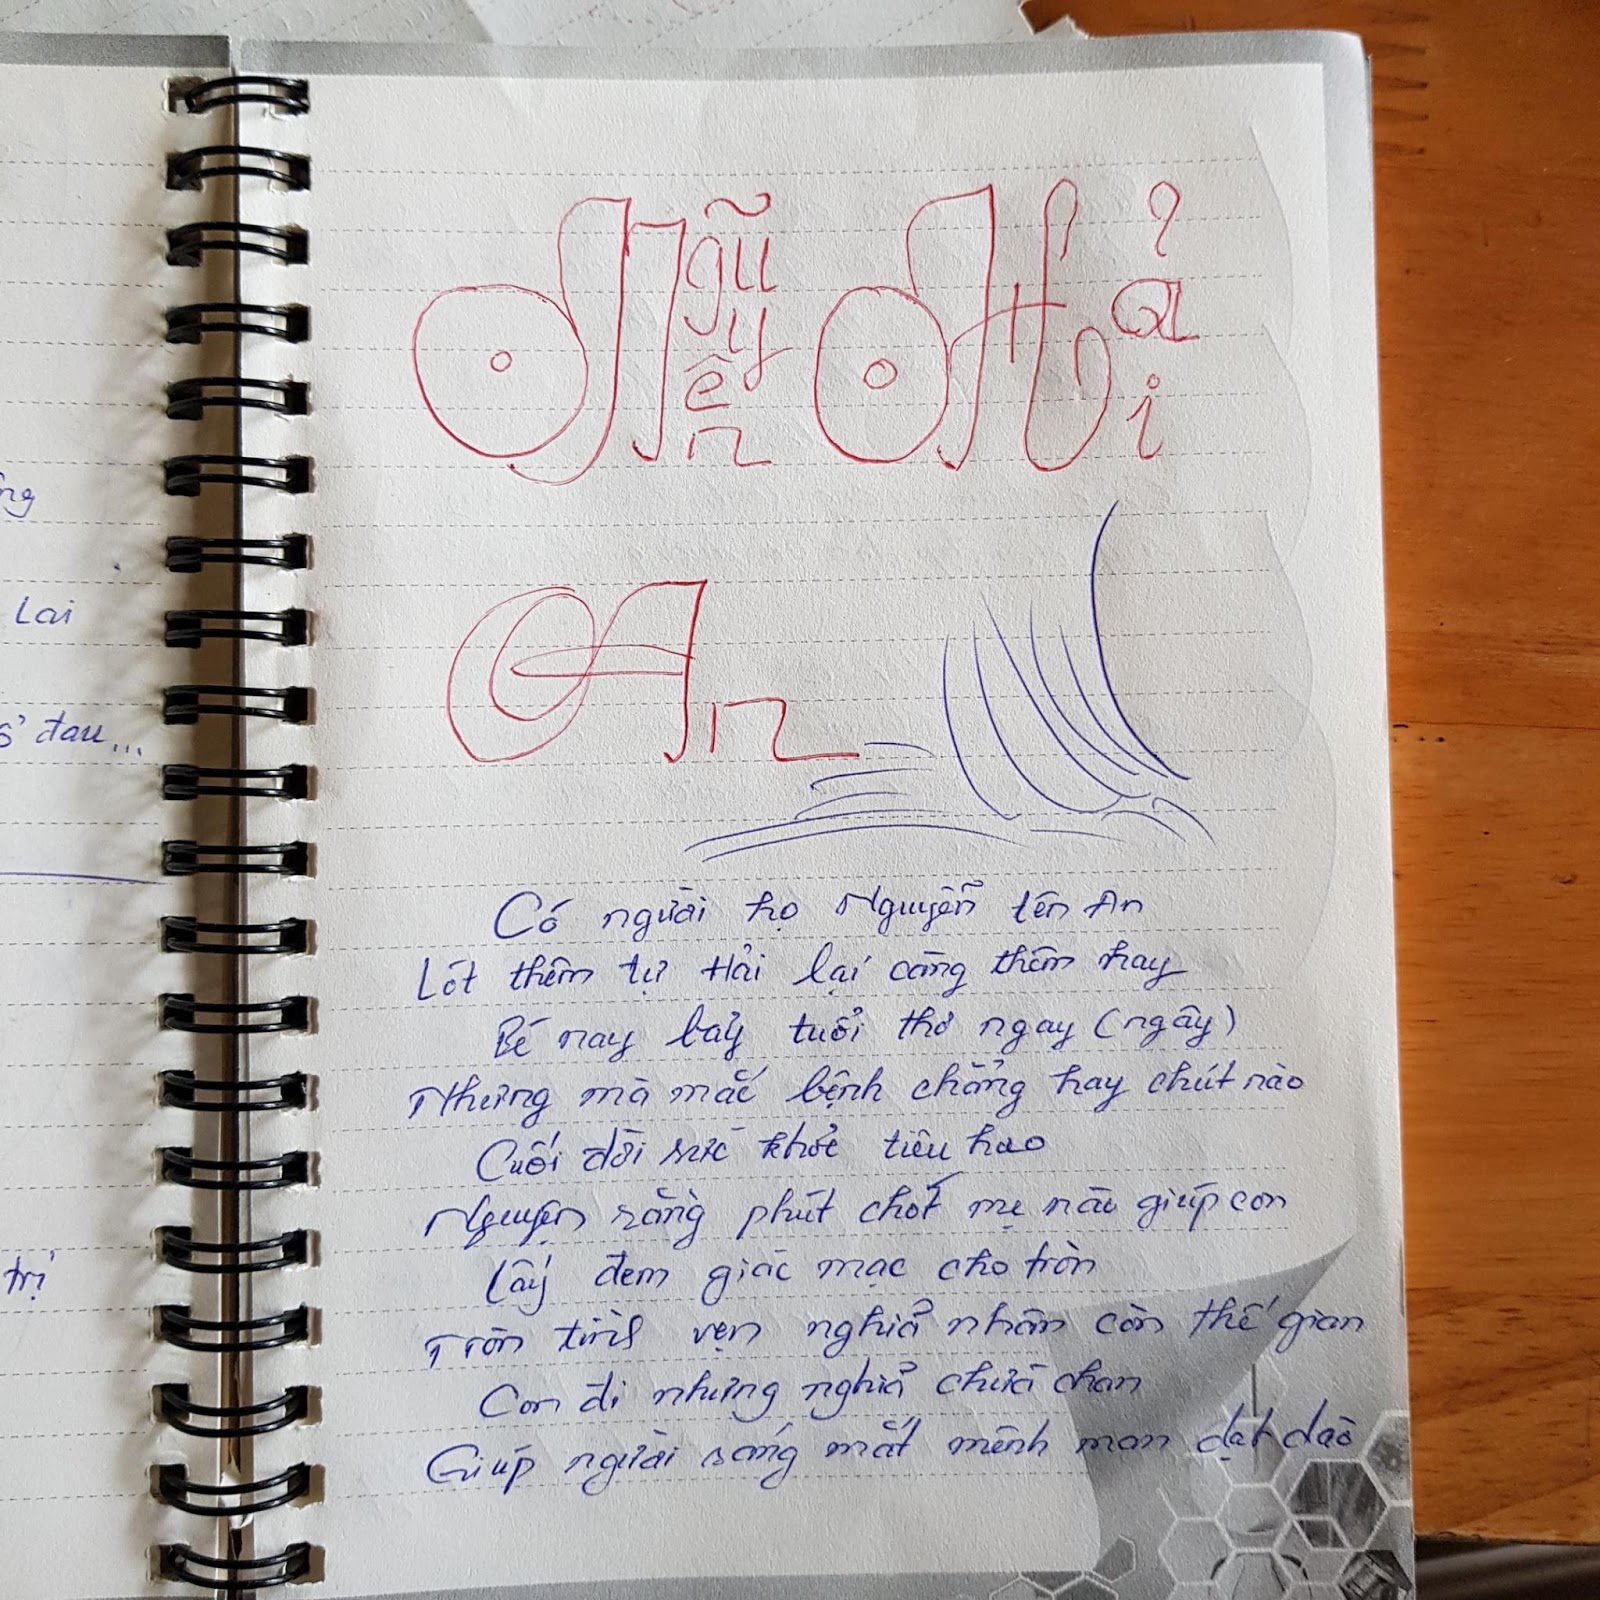 Nguyễn Hải
An
Có người họ Nguyễn tên An
Lót thêm tự Hải lại càng thêm hay
Bé nay bảy tuổi thơ ngay (ngây)
Nhưng mà mắc bệnh chẳng hay chút nào
Cuối đời sức khỏe tiêu hao
Nguyện rằng phút chót mẹ nào giúp con
Lấy đem giác mạc cho tròn
Tròn tình vẹn nghĩa nhân còn thế gian
Con đi nhưng nghĩa chứa chan
Giúp người sáng mắt mênh man dạt dào
ng
Lai
đau...
trị